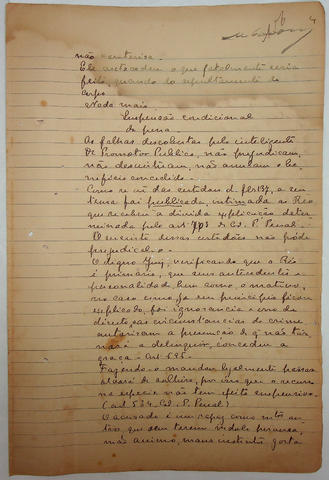 não
Ele antecedeu o que fatalmente seria
feito, quando do sepultamento do
corpo.
Nada mais.
Suspensão condicional
da pena.
As falhas descobertas pelo inteligente
Dr. Promotor Publico, não prejudicam,
não desvirtuam, não anulam o be
neficio concedido.
Como se vê das certidões de fls 137, a sen
tença foi publicada, intimada ao Réo
que recebeu a devida explicação deter
minada pelo art. 703 do Cod. P. Penal.
O encerro dessas certidões não póde
prejudical-o.
O digno Juiz, verificando que o Réo
é primario, que seus antecedentes e
personalidade bem como, o motivo,
no caso como já em principio ficou
explicado, foi ignorancia e erro de
direito, as circumstancias do crime
autorisam a presunção de q não tor
nará a delinquir, concedeu a
graça - art. 696 -
Fazendo-o mandou legalmente passar
alvará de soltura, por isso que o recurso
na especie não tem efeito suspensivo.
(art 584 Cod. P. Penal)
O acusado é um rapaz como
que sem terem
não animo, mas